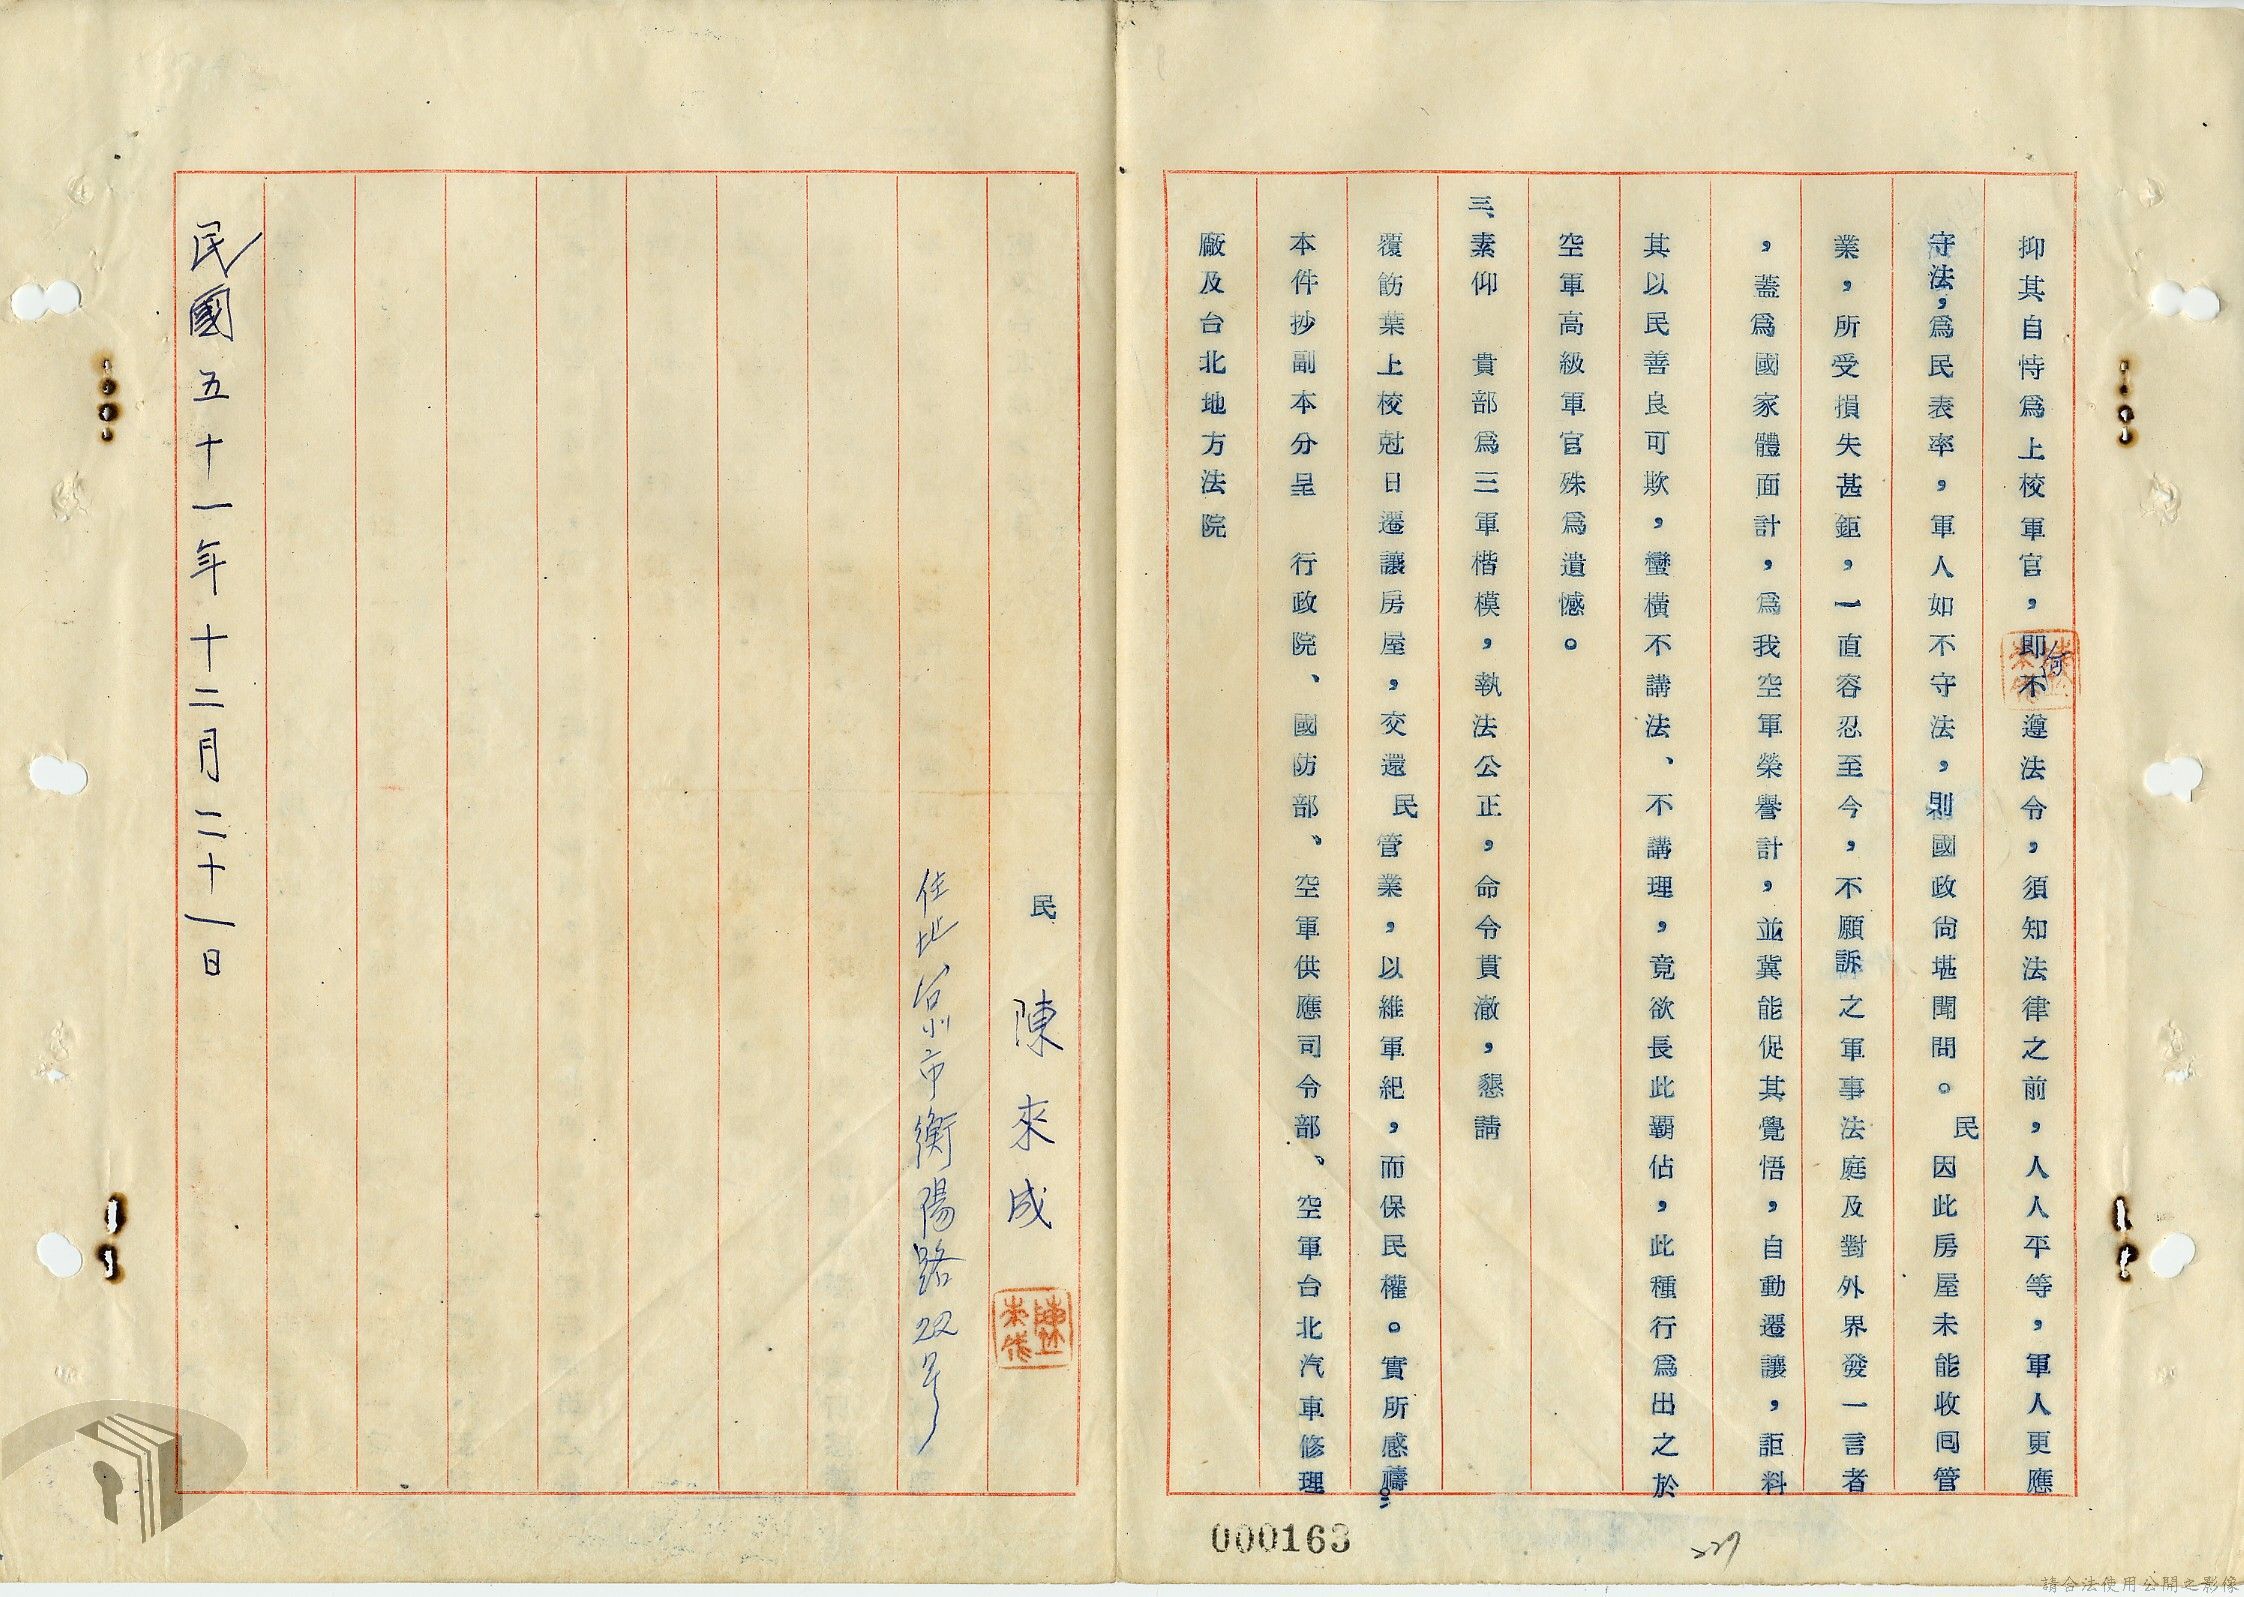 抑其自恃為上校軍官，即何不遵法令，須知法律之前，人人平等，軍人更應
守法，為民表率，軍人如不守法，則國政尚堪聞問。民因此房屋未能收回管
業，所受損失甚鉅，一直容忍至今，不願訴之軍事法庭及對外界發一言者
，蓋為國家體面計，為我空軍榮譽計，並冀能促其覺悟，自動遷讓，詎料
其以民善良可欺，蠻橫不講法、不講理，竟欲長此霸佔，此種行為出之於
空軍高級軍官殊為遺憾。
三、素仰　貴部為三軍楷模，執法公正，命令貫澈，懇請
覆飭葉上校尅日遷讓房屋，交還民管業，以維軍紀，而保民權。實所感禱。
本件抄副本分呈　行政院、國防部、空軍供應司令部、空軍台北汽車修理
廠及台北地方法院
民　陳來成
住址台北市衡陽路22号
民國五十一年十二月二十一日
000163
227
請合法使用公開之影像